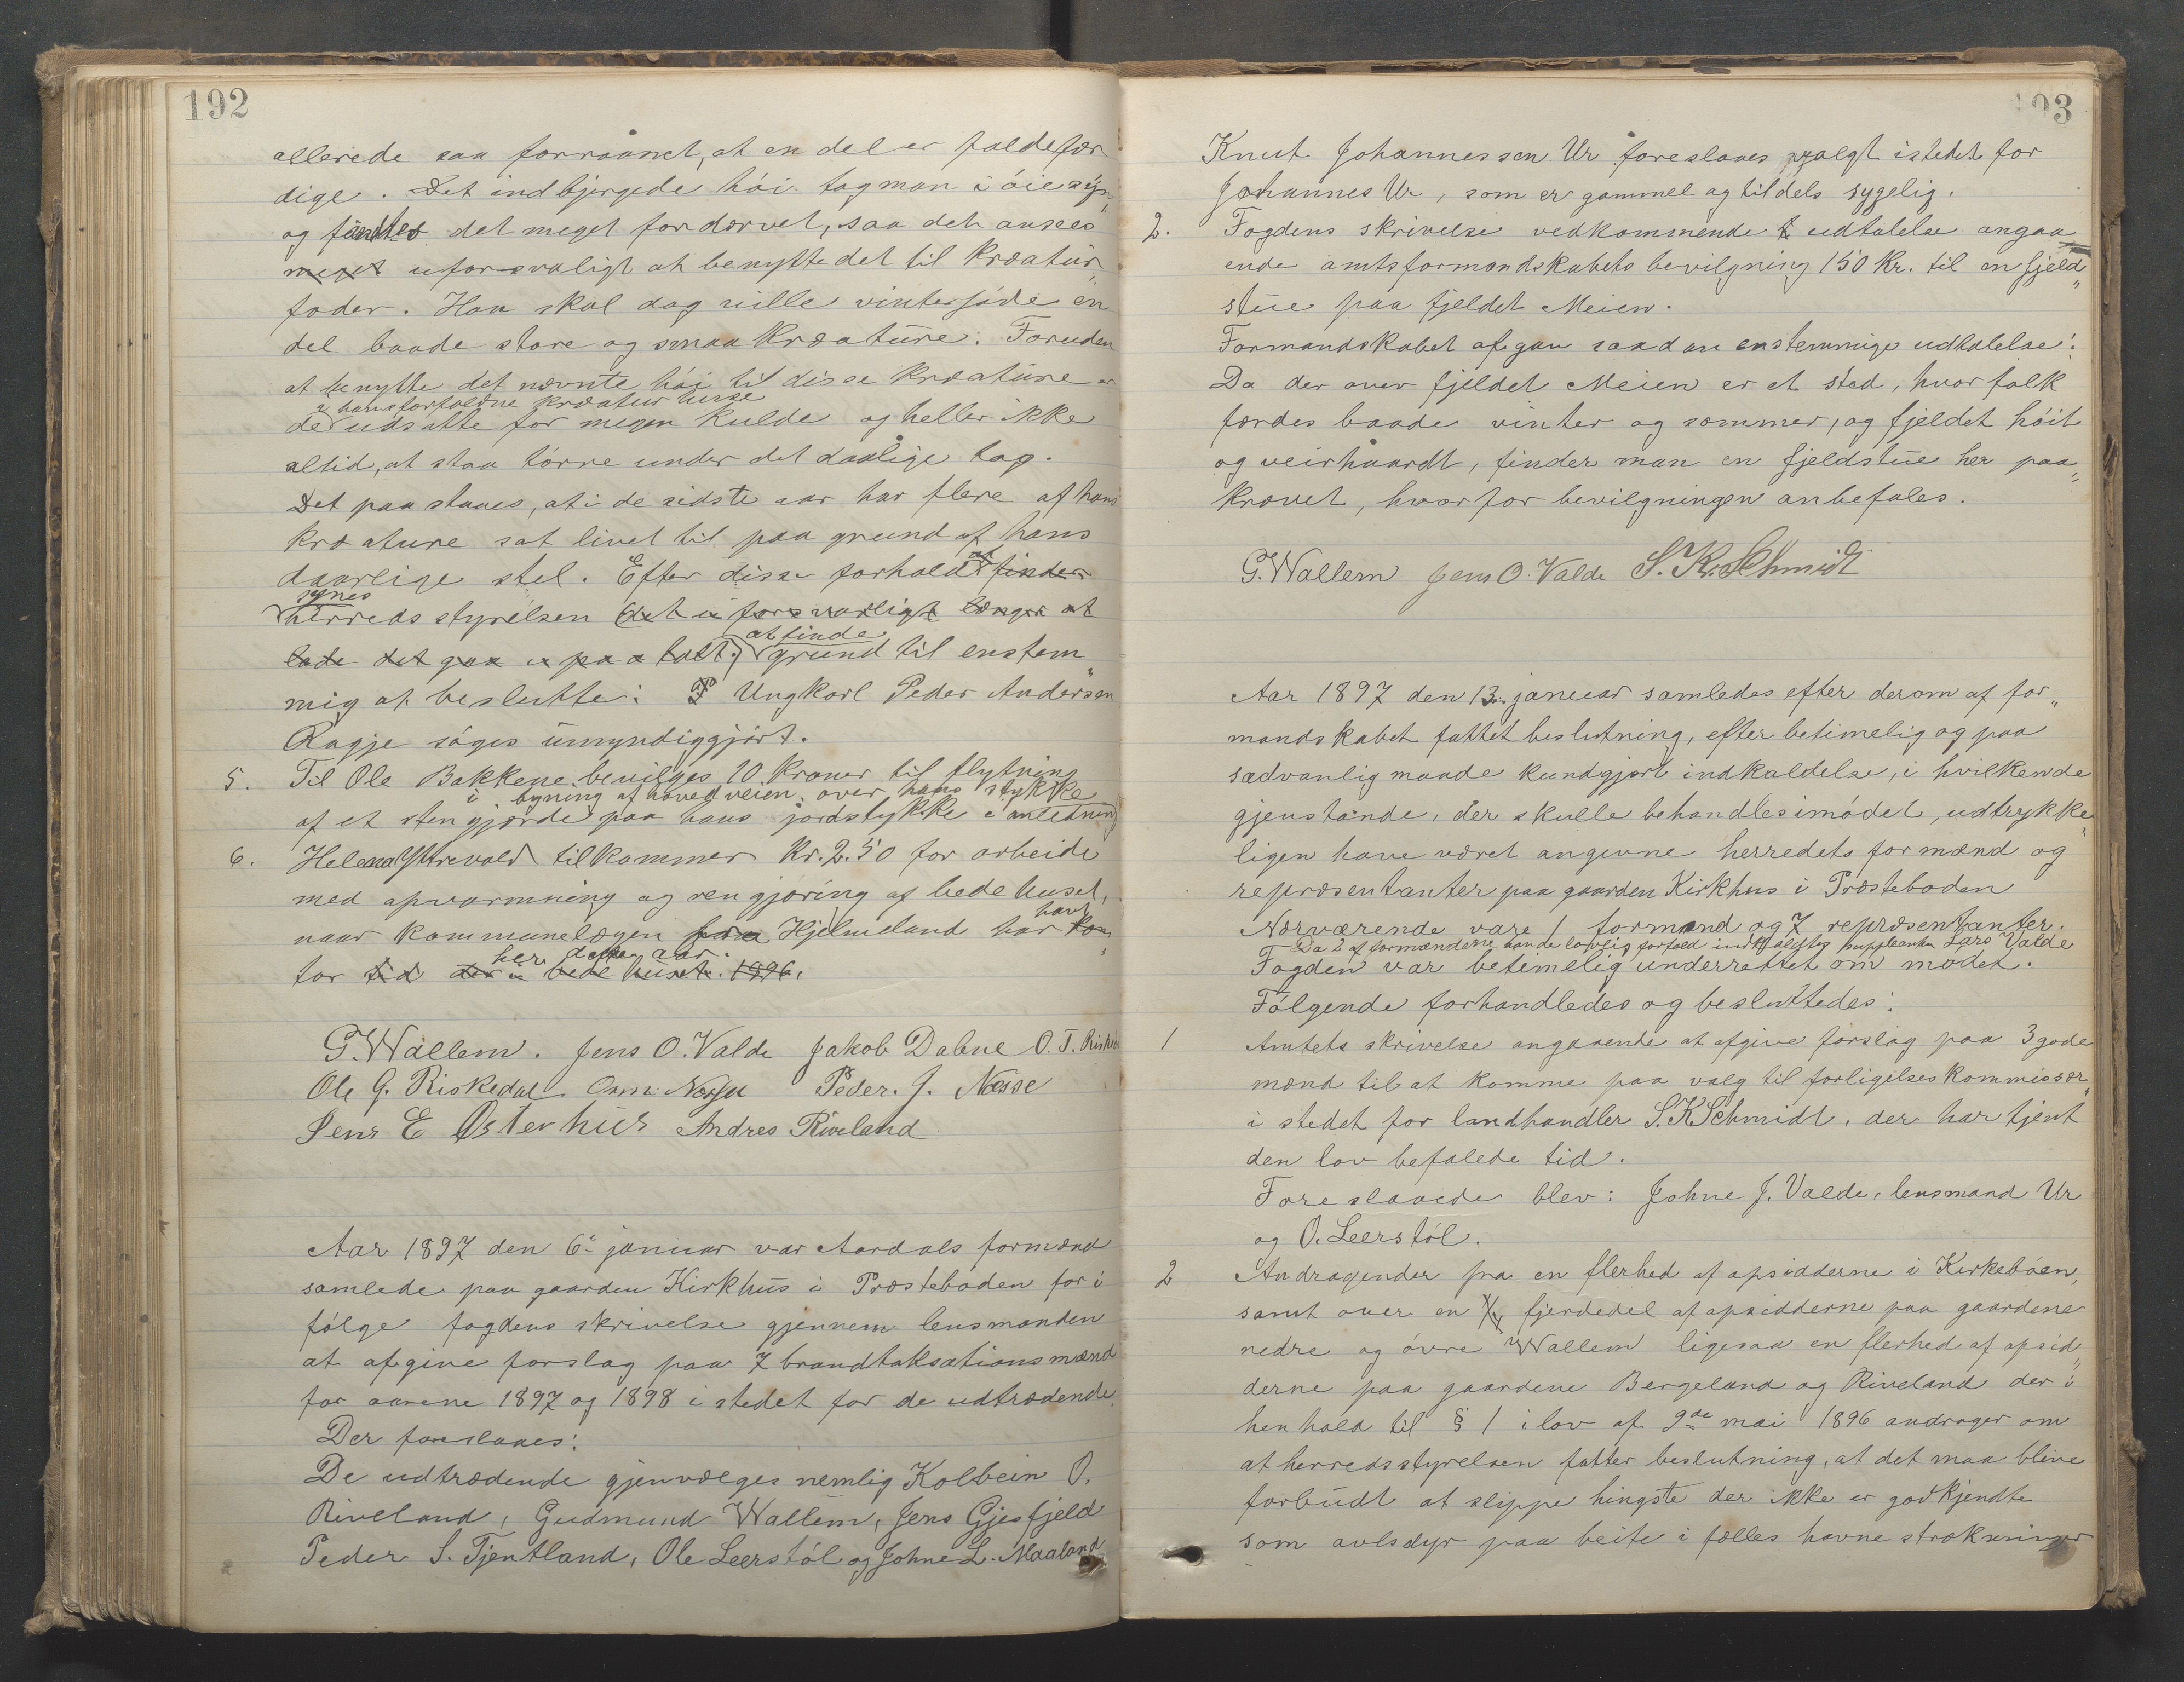 192
allerede saa forraanet, at en del er faldefær
dige. Det indbjergede hói tog man i óiesyn
og fandtes det meget fordærvet, saa det ansees
meget uforsvaligt at benytte det til Kræatur„
foder. Han skal dog ville vinterföde en
del baade store og smaa Kræature. Foruden
at benytte det nævnte hói til disse Kræature er
i hans forfaldne kræatur huse
de udsatte for megen Kulde og heller ikke
altid, at staa törre under det daalige tag.
Det paastaaes, at i de sidste aar har flere af hans
Kræature sat livet til paa grund af hans
daarlige stel. Efter disse forhold finder
synes
herredsstyrelsen det uforsvarligt længer at
at finde
lade det gaa upaatalt, grund til enstem„
mig at beslutte: Ungkarl Peder Andersen
Ragje söges umyndiggjórt.
5. Til Ole Bakkene bevilges 10 Kroner til flytning
i bygning af hovedveien over hans stykke
af et stengjærde paa hans jordstykke i anledning
6. Helena Ytrevold tilkommer Kr. 2.50 for arbeide
med opvarmning og rengjöring af bedehuset,
havt
naar Kommunelægen fra Hjelmeland har Kon„
her dette aar.
tor tid der i bedehuset. 1996.
G. Wallem. Jens O. Valde Jakob Dalene O. T. Riske
Ole G. Riskedal Peder. J. Nesse
Jens E Østerhus Andres Riveland
Aar 1897 den 6te januar var Aardals formænd
samlede paa gaarden Kirkhus i Præsteboden for i
fölge fogdens skrivelse gjennem lensmanden
at afgive forslag paa 7 brandtaksationsmænd
for aarene 1897 og 1898 i stedet for de udtrædende.
Der foreslaaes:
De udtrædende gjenvælges nemlig Kolbein O.
Riveland, Gudmund Wallem, Jens Gjesfjeld
Peder S. Tjentland, Ole Leerstöl og Johne L. Maaland
193
Knut Johannessen Ur foreslaaes valgt istedet for
Johannes Ur, som er gammel og tildels sygelig.
2. Fogdens skrivelse vedkommende udtalelse angaa
ende amtsformandskabets bevilgning 150 Kr. til en fjeld„
stue paa fjeldet Meien.
Formandskabet afgav saadan enstemmige udtalelse:
Da der over fjeldet Meien er et sted, hvor folk
færdes baade vinter og sommer, og fjeldet höit
og veirhaardt, finder man en fjeldstue her paa„
krævet, hvorfor bevilgningen anbefales.
G. Wallem Jens O. Valde S. K. Schmidt
Aar 1897 den 13. januar samledes efter derom af for„
mandskabet fattet beslutning, efter betimelig og paa
sædvanlig maade kundgjort indkaldelse, i hvilken de
gjenstande, der skulle behandles i mödet, udtrykke„
ligen have været angivne herredets formænd og
repræsentanter paa gaarden Kirkhus i Præsteboden
Nærværende vare 1 formand og 7 repræsentanter.
Da 2 af formændene havde lovlig forfald indkaldtes suppleanten Lars Valde
Fogden var betimelig underrettet om mödet.
Fölgende forhandledes og besluttedes:
1 Amtets skrivelse angaaende at afgive forslag paa 3 gode
mænd til at komme paa valg til forligelseskommissær„
i stedet for landhandler S. K Schmidt, der har tjent
den lov befalede tid.
Foreslaaede blev: Johne J. Valde, lensmand Ur
og O. Leerstól.
2 Andragender fra en flerhed af opsidderne i Kirkebóen,
samt over en fjerdedel af opsidderne paa gaardene
nedre og óvre Wallem ligesaa en flerhed af opsid„
derne paa gaardene Bergeland og Riveland der i
henhold til § 1 i lov af 9de mai 1896 andrager om
at herredsstyrelsen fatter beslutning, at det maa blive
forbudt at slippe hingste der ikke er godkjendte
som avlsdyr paa beite i fælles havnestrækninger